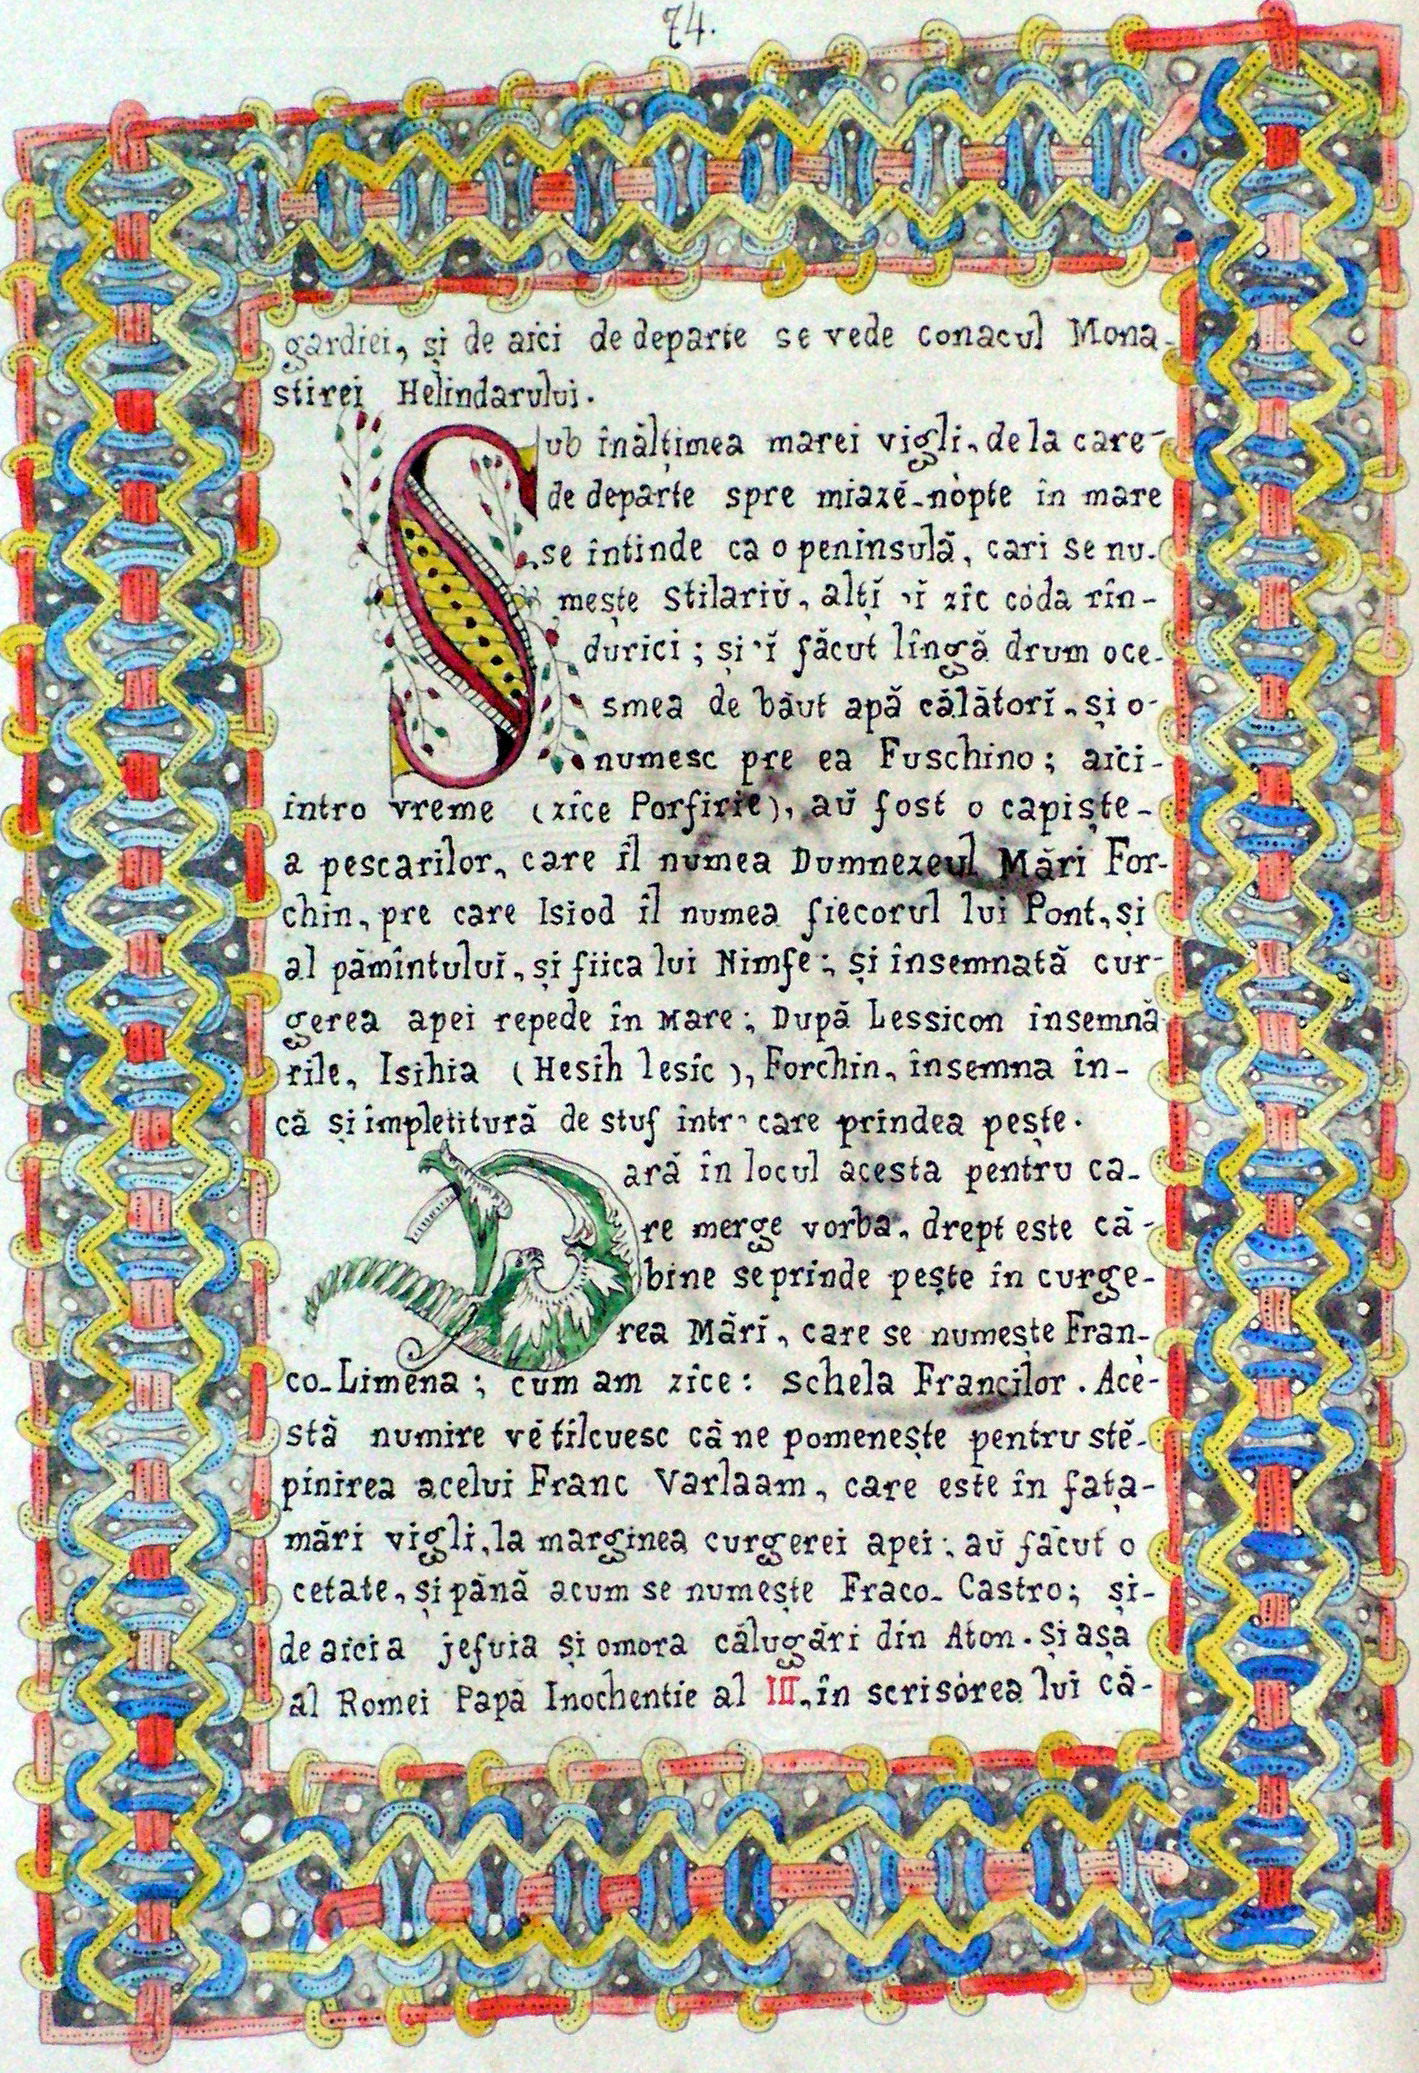 74.
gardiei, și de aici de departe se vede conacul Mona-
stirei Helindarului.
Sub înălțimea marei vigli, de la care-
de departe spre miază-nópte în mare
se întinde ca o peninsulă, cari se nu-
mește Stilariŭ, alțĭ 'ĭ zîc códa rîn-
durici; și 'ĭ făcut lîngă drum o ce-
smea de băut apă călătorĭ, și o-
numesc pre ea Fuschino; aici-
întro vreme (zîce Porfirie), aŭ fost o capiște-
a pescarilor, care îl numea Dumnezeul Mări For-
chin, pre care Isiod îl numea fiecorul lui Pont, și
al pămîntuluĭ, și fiica lui Nimfe; și însemnată cur-
gerea apei repede în Mare; După Lessicon însemnă
rile, Isihia (Hesih lesîc), Forchin, însemna în-
că și împletitură de stuf într' care prindea pește.
Dară în locul acesta pentru ca-
re merge vorba, drept este că-
bine se prinde pește în curge-
rea Mărĭ, care se numește Fran-
co-Limena; cum am zîce: Schela Francilor. Acé-
stă numire vĕ tîlcuesc că ne pomenește pentru stĕ-
pînirea acelui Franc Varlaam, care este în fața-
mări vigli, la marginea curgerei apei; aŭ făcut o
cetate, și pănă acum se numește Fraco-Castro; și-
de aici a jefuia și omora călugări din Aton. Și așa
al Romei Papă Inochentie al III, în scrisórea lui că-